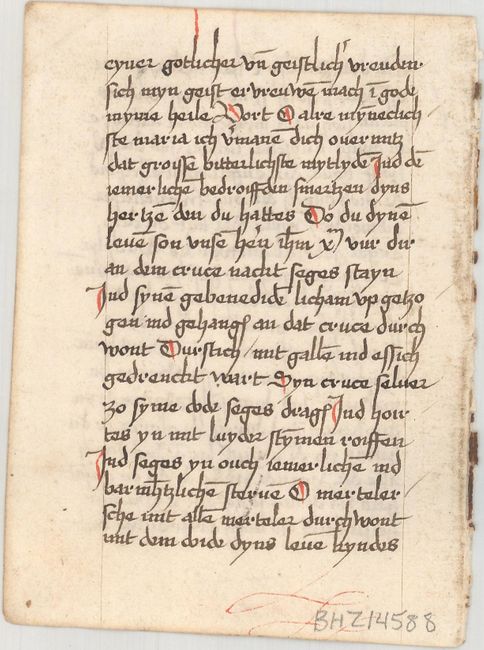 eyner gotlicher vn̄ geistlich' vreuden
sich myn geist ervreuwē mach ī gode
myme heile Vort O alre mȳneclich
ste maria ich v'manē dich ouermitz
dat groisse bitterlichste mytlydē Ind dē
iemerlichē bedroiffden smertzen dyns
hertzē den du hattes Do du dynē
leuē son vnsē her'n ih̄m xp̄m vur dir
an dem cruce nackt seges stayn
Ind synē gebenedidē licham vp getzo
gen ind gehangē an dat cruce durch
wont Durstich mit gallē ind essich
gedrenckt wart Syn cruce seluer
zo syme dode seges dragē Ind hoir
tes yn mit luyder stȳmen roiffen
Ind seges yn ouch iemerlichē ind
barmh'tzlichē steruē O merteler
sche mit allē merteler durchwont
mit dem doide dyns leuē kyndes
BHZ14588